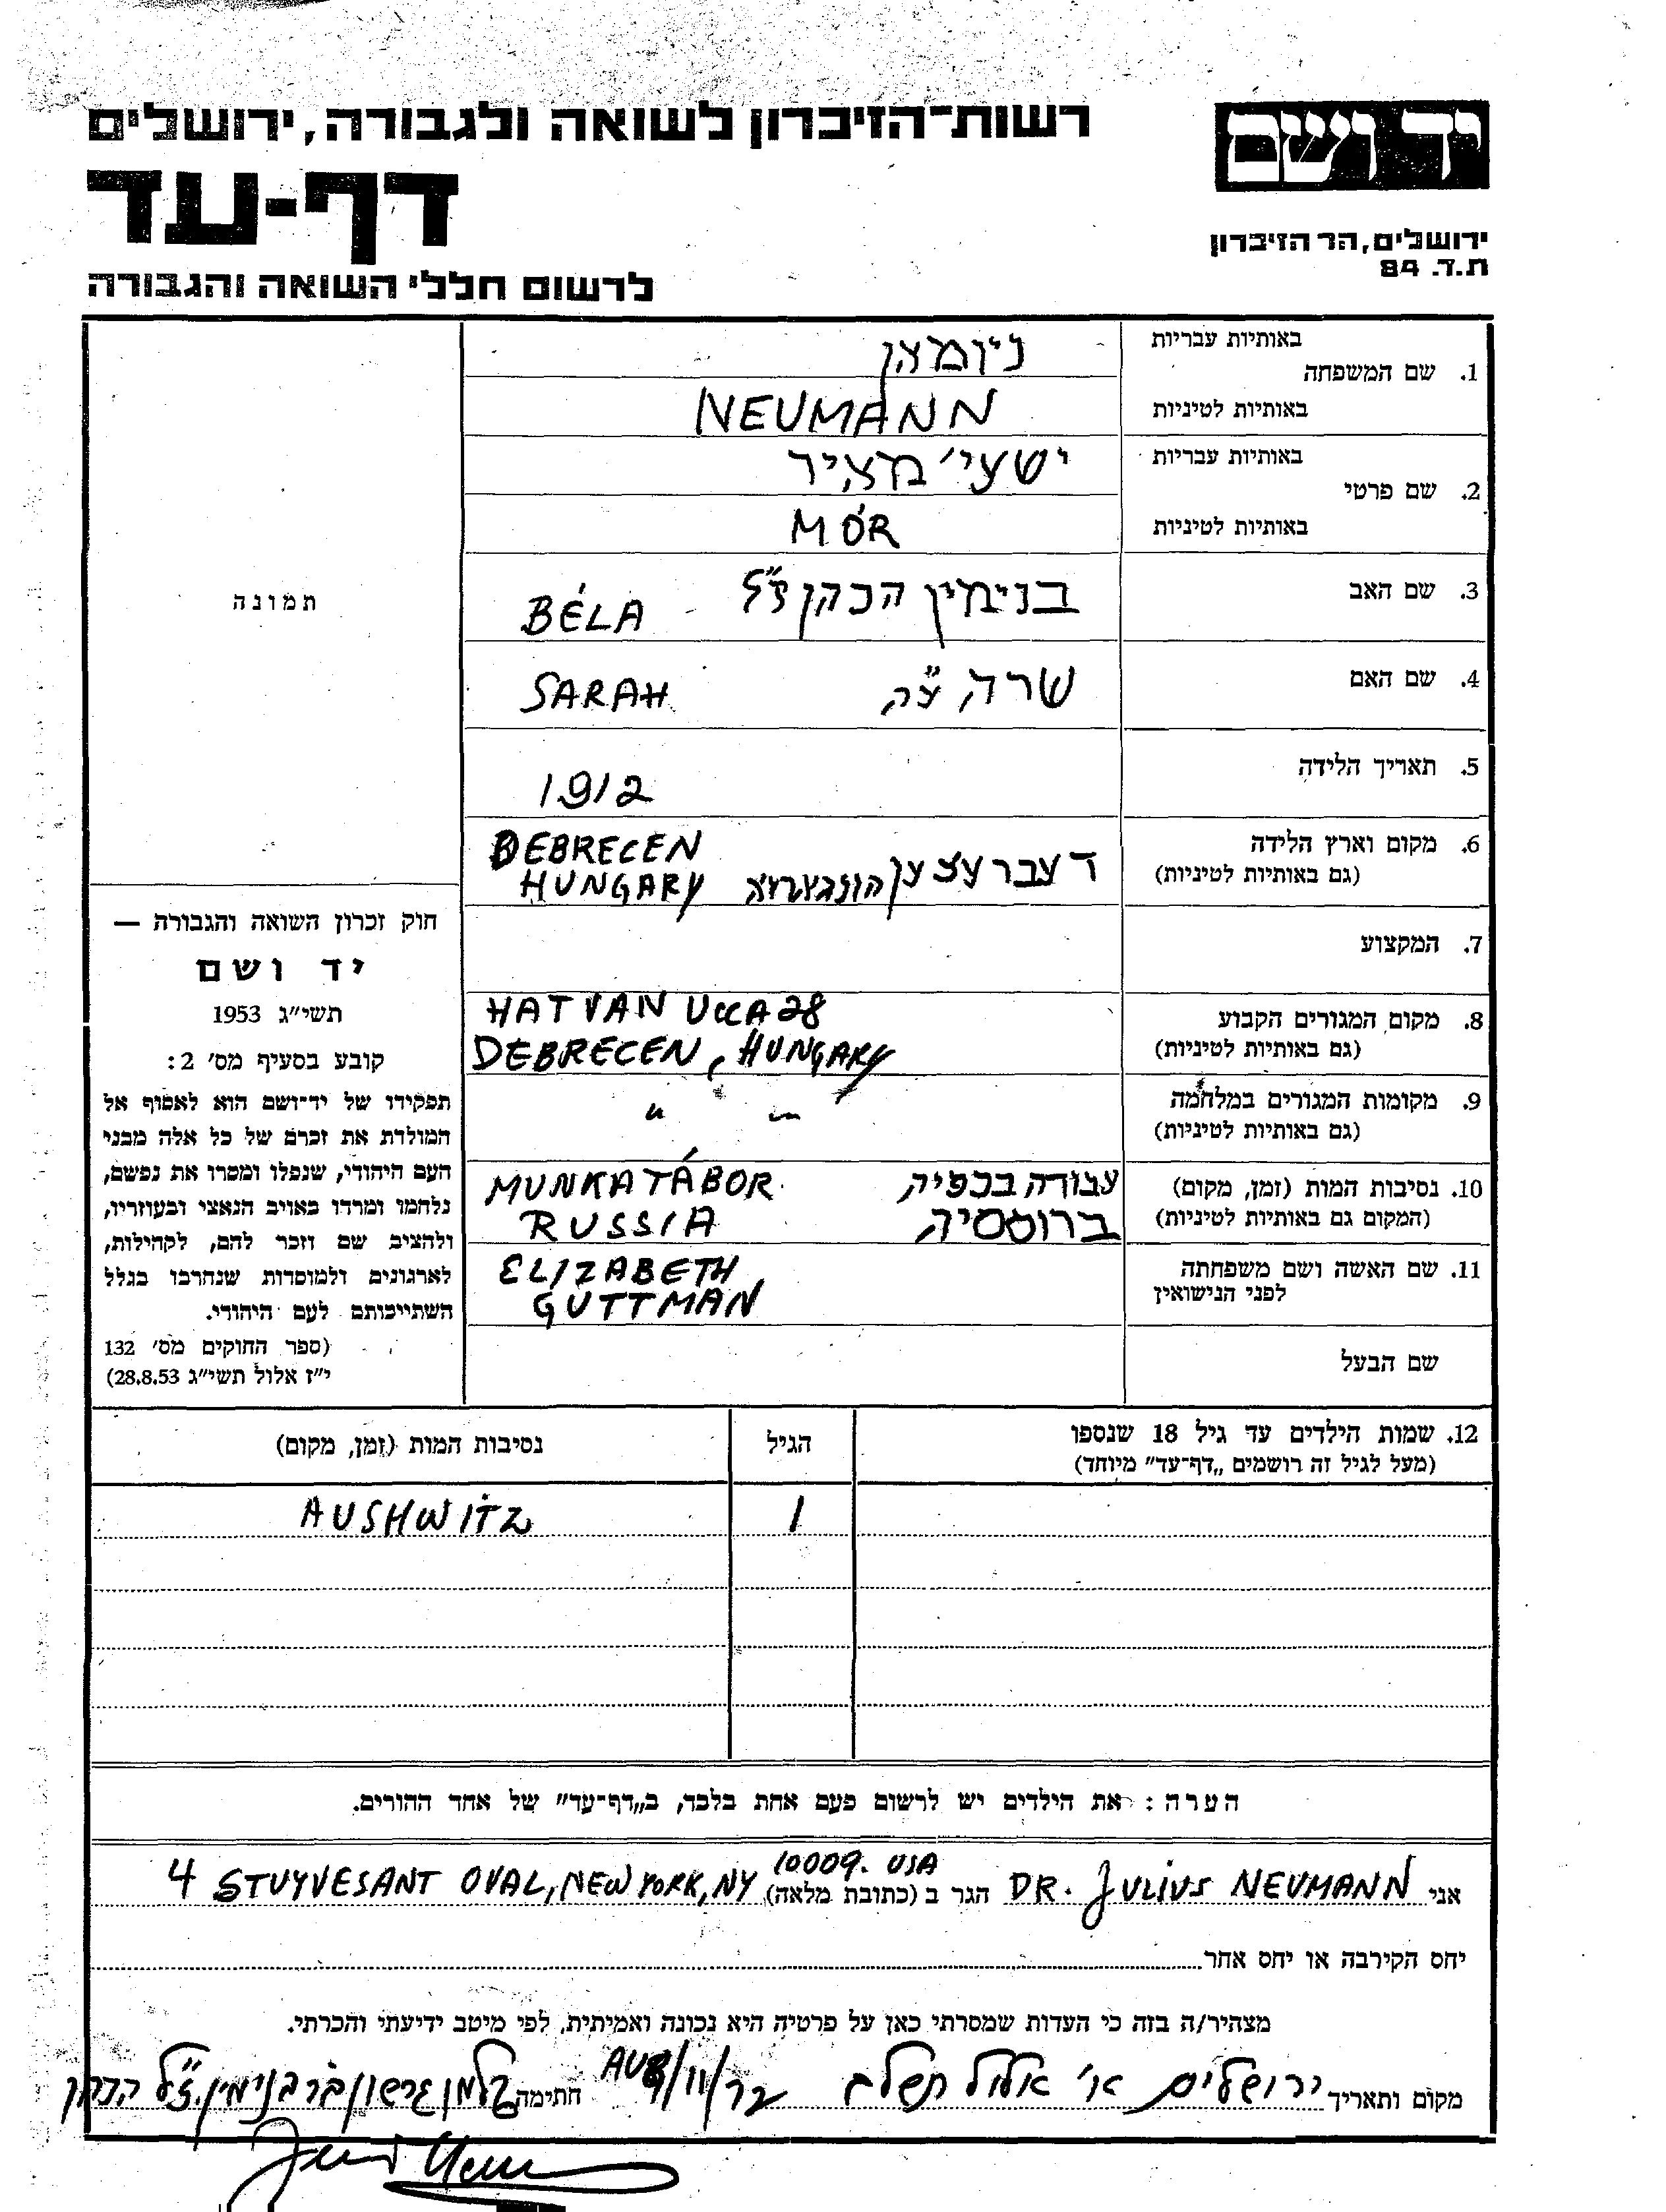 רשות־הזיכרון לשואה ולגבורה, ירושלים
יד ושם
דף-עד
ירושלים, הר הזיכרון
ת.ד. 84
לרשום חללי השואה והגבורה
באותיות עבריות
ניומאן
1. שם המשפחה
באותיות לטיניות
NEUMANN
באותיות עבריות
ישעי' מאיר
2. שם פרטי
באותיות לטיניות
MÓR
תמונה
3. שם האב
בנימין הכהן ז"ל BÉLA
4. שם האם
שרה ע"ה SARAH
5. תאריך הלידה
1912
6. מקום וארץ הלידה
(גם באותיות לטיניות)
דעברעצען
DEBRECEN
HUNGARY
7. המקצוע
8. מקום המגורים הקבוע
(גם באותיות לטיניות)
HATVAN UCCA 28
DEBRECEN, HUNGARY
9. מקומות המגורים במלחמה
(גם באותיות לטיניות)
" "
10. נסיבות המות (זמן, מקום)
(המקום גם באותיות לטיניות)
עבודה בכפיה MUNKATÁBOR
ברוססיה RUSSIA
11. שם האשה ושם משפחתה
לפני הנישואין
ELIZABETH
GUTTMAN
שם הבעל
חוק זכרון השואה והגבורה —
יד ושם
תשי"ג 1953
קובע בסעיף מס' 2:
תפקידו של יד־ושם הוא לאסוף אל
המולדת את זכרם של כל אלה מבני
העם היהודי, שנפלו ומסרו את נפשם,
נלחמו ומרדו באויב הנאצי ובעוזריו,
ולהציב שם וזכר להם, לקהילות,
לארגונים ולמוסדות שנחרבו בגלל
השתייכותם לעם היהודי.
(ספר החוקים מס' 132
י"ז אלול תשי"ג 28.8.53)
12. שמות הילדים עד גיל 18 שנספו
(מעל לגיל זה רושמים „דף־עד" מיוחד)
הגיל
נסיבות המות (זמן, מקום)
1
AUSHWITZ
הערה: את הילדים יש לרשום פעם אחת בלבד, ב„דף־עד" של אחד ההורים.
אני DR. JULIUS NEUMANN הגר ב (כתובת מלאה) 4 STUYVESANT OVAL, NEW YORK, NY 10009. USA
יחס הקירבה או יחס אחר
מצהיר/ה בזה כי העדות שמסרתי כאן על פרטיה היא נכונה ואמיתית, לפי מיטב ידיעתי והכרתי.
מקום ותאריך ירושלים א' אלול תשל"ב חתימה קלמן גרשון בר בנימין ז"ל הכהן